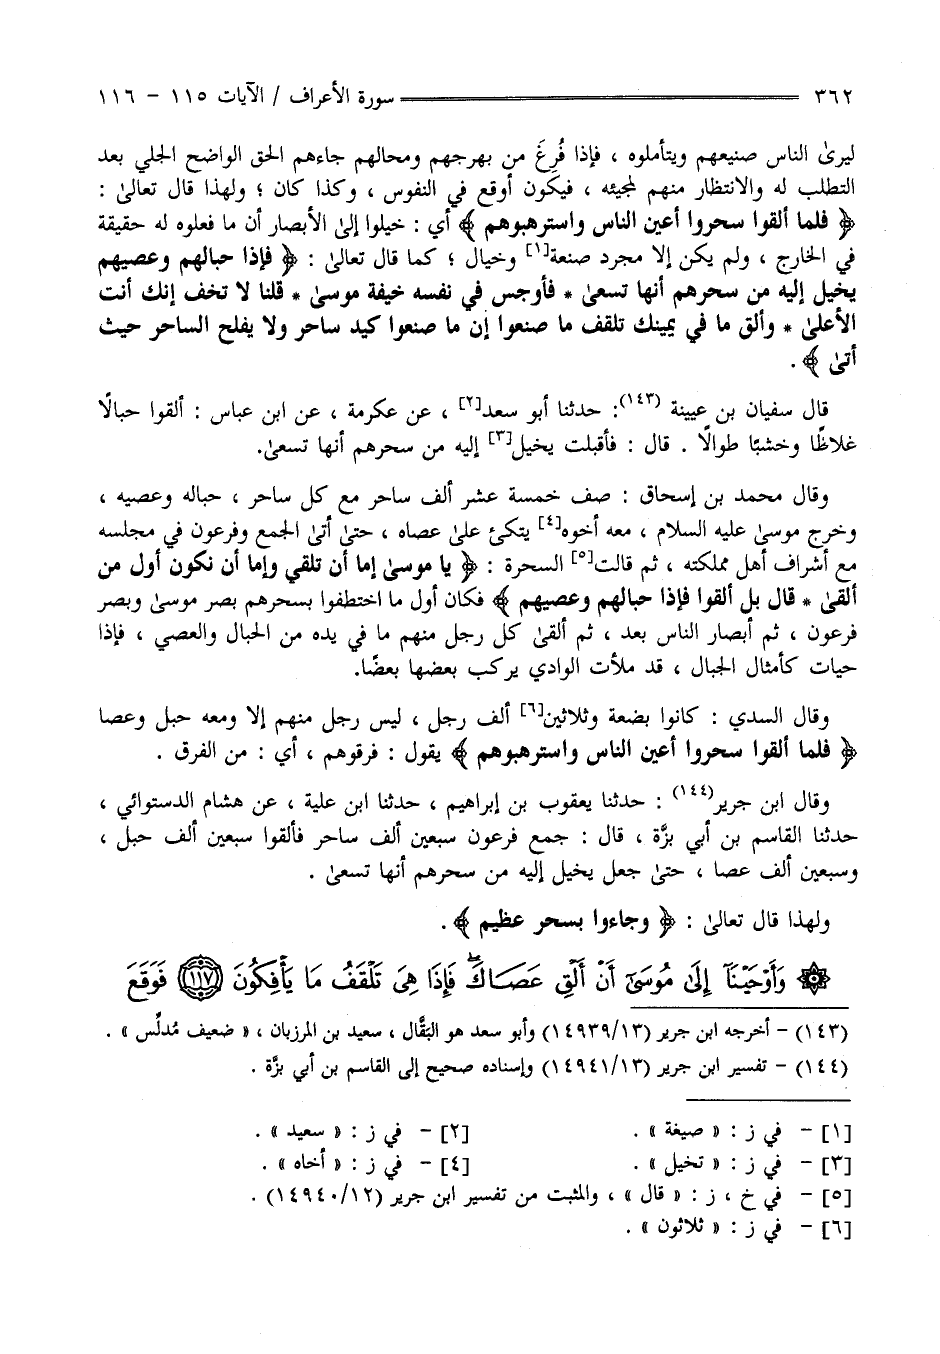 ٣٦٢ سورة الأعراف / الآيات ١١٥ - ١١٦
ليرىٰ الناس صنيعهم ويتأملوه ، فإذا فُرِغَ من بهرجهم ومحالهم جاءهم الحق الواضح الجلي بعد
التطلب له والانتظار منهم لمجيئه ، فيكون أوقع في النفوس ، وكذا كان ؛ ولهذا قال تعالىٰ :
﴿ فلما ألقوا سحروا أعين الناس واسترهبوهم ﴾ أي : خيلوا إلىٰ الأبصار أن ما فعلوه له حقيقة
في الخارج ، ولم يكن إلا مجرد صنعة[١] وخيال ؛ كما قال تعالىٰ : ﴿ فإذا حبالهم وعصيهم
يخيل إليه من سحرهم أنها تسعىٰ * فأوجس في نفسه خيفة موسىٰ * قلنا لا تخف إنك أنت
الأعلىٰ * وألق ما في يمينك تلقف ما صنعوا إن ما صنعوا كيد ساحر ولا يفلح الساحر حيث
أتىٰ ﴾ .
قال سفيان بن عيينة (١٤٣): حدثنا أبو سعد[٢] ، عن عكرمة ، عن ابن عباس : ألقوا حبالًا
غلاظًا وخشبًا طوالًا . قال : فأقبلت يخيل[٣] إليه من سحرهم أنها تسعىٰ.
وقال محمد بن إسحاق : صف خمسة عشر ألف ساحر مع كل ساحر ، حباله وعصيه ،
وخرج موسىٰ عليه السلام ، معه أخوه[٤] يتكئ علىٰ عصاه ، حتىٰ أتىٰ الجمع وفرعون في مجلسه
مع أشراف أهل مملكته ، ثم قالت[٥] السحرة : ﴿ يا موسىٰ إما أن تلقي وإما أن نكون أول من
ألقىٰ * قال بل ألقوا فإذا حبالهم وعصيهم ﴾ فكان أول ما اختطفوا بسحرهم بصر موسىٰ وبصر
فرعون ، ثم أبصار الناس بعد ، ثم ألقىٰ كل رجل منهم ما في يده من الحبال والعصي ، فإذا
حيات كأمثال الجبال ، قد ملأت الوادي يركب بعضها بعضًا.
وقال السدي : كانوا بضعة وثلاثين[٦] ألف رجل ، ليس رجل منهم إلا ومعه حبل وعصا
﴿ فلما ألقوا سحروا أعين الناس واسترهبوهم ﴾ يقول : فرقوهم ، أي : من الفرق .
وقال ابن جرير(١٤٤) : حدثنا يعقوب بن إبراهيم ، حدثنا ابن علية ، عن هشام الدستوائي ،
حدثنا القاسم بن أبي بزَّة ، قال : جمع فرعون سبعين ألف ساحر فألقوا سبعين ألف حبل ،
وسبعين ألف عصا ، حتىٰ جعل يخيل إليه من سحرهم أنها تسعىٰ .
ولهذا قال تعالىٰ : ﴿ وجاءوا بسحر عظيم ﴾ .
۞ وَأَوْحَيْنَآ إِلَىٰ مُوسَىٰٓ أَنْ أَلْقِ عَصَاكَۖ فَإِذَا هِىَ تَلْقَفُ مَا يَأْفِكُونَ ١١٧ فَوَقَعَ
(١٤٣) - أخرجه ابن جرير (١٤٩٣٩/١٣) وأبو سعد هو البَقَّال ، سعيد بن المرزبان ، « ضعيف مُدلِّس » .
(١٤٤) - تفسير ابن جرير (١٤٩٤١/١٣) وإسناده صحيح إلى القاسم بن أبي بزَّة .
[١] - في ز : « صيغة » . [٢] - في ز : « سعيد » .
[٣] - في ز : « تخيل » . [٤] - في ز : « أخاه » .
[٥] - في خ ، ز : « قال » ، والمثبت من تفسير ابن جرير (١٤٩٤٠/١٢) .
[٦] - في ز : « ثلاثون » .